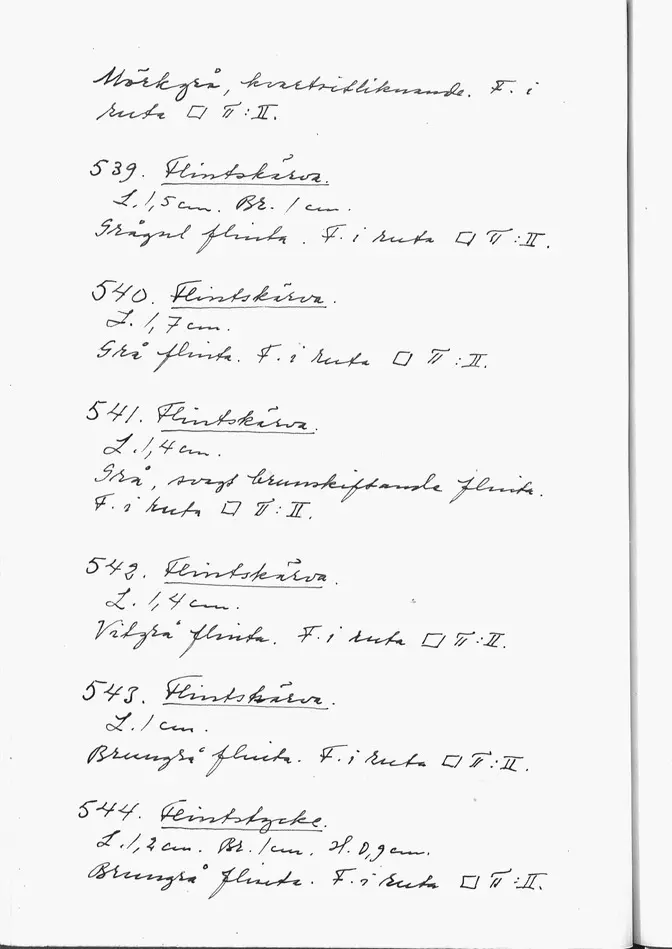 Mörkgrå, kvartsitliknande. F. i
ruta □ π : II.
539. Flintskärva.
L. 1,5 cm. Br. 1 cm.
Grågul flinta. F. i ruta □ π : II.
540. Flintskärva.
L. 1,7 cm.
Grå flinta. F. i ruta □ π : II.
541. Flintskärva.
L. 1,4 cm.
Grå, svagt brunskiftande flinta.
F. i ruta □ π : II.
542. Flintskärva.
L. 1,4 cm.
Vitgrå flinta. F. i ruta □ π : II.
543. Flintskärva.
L. 1 cm.
Brungrå flinta. F. i ruta □ π : II.
544. Flintstycke.
L. 1,2 cm. Br. 1 cm. H. 0,9 cm.
Brungrå flinta. F. i ruta □ π : II.